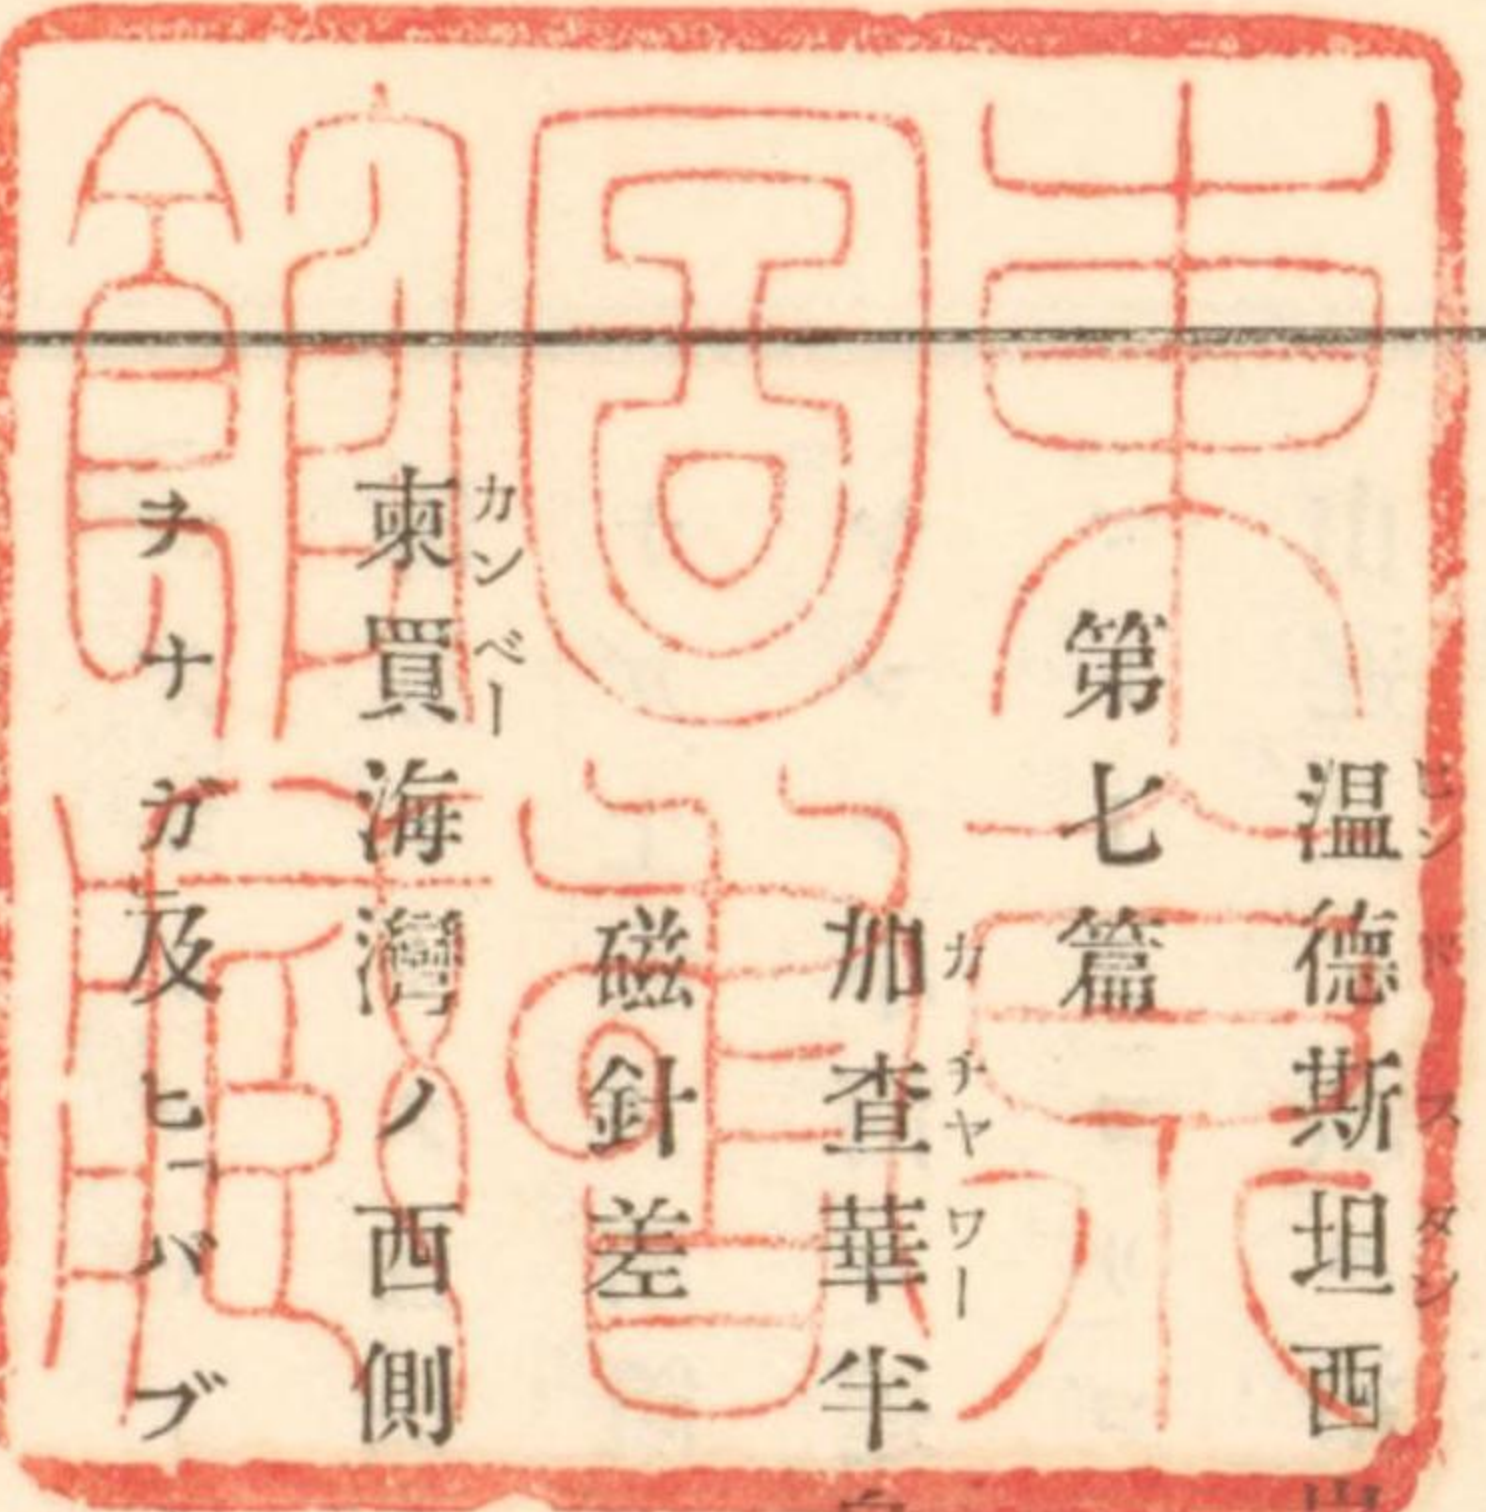 温德斯坦西
ヒンドスタン
第七篇
加查華半
カチヤワー
磁針差
柬買海灣ノ西側
カンベー
ヲナガ」及ヒ「バブ
東京
圖書
館藏